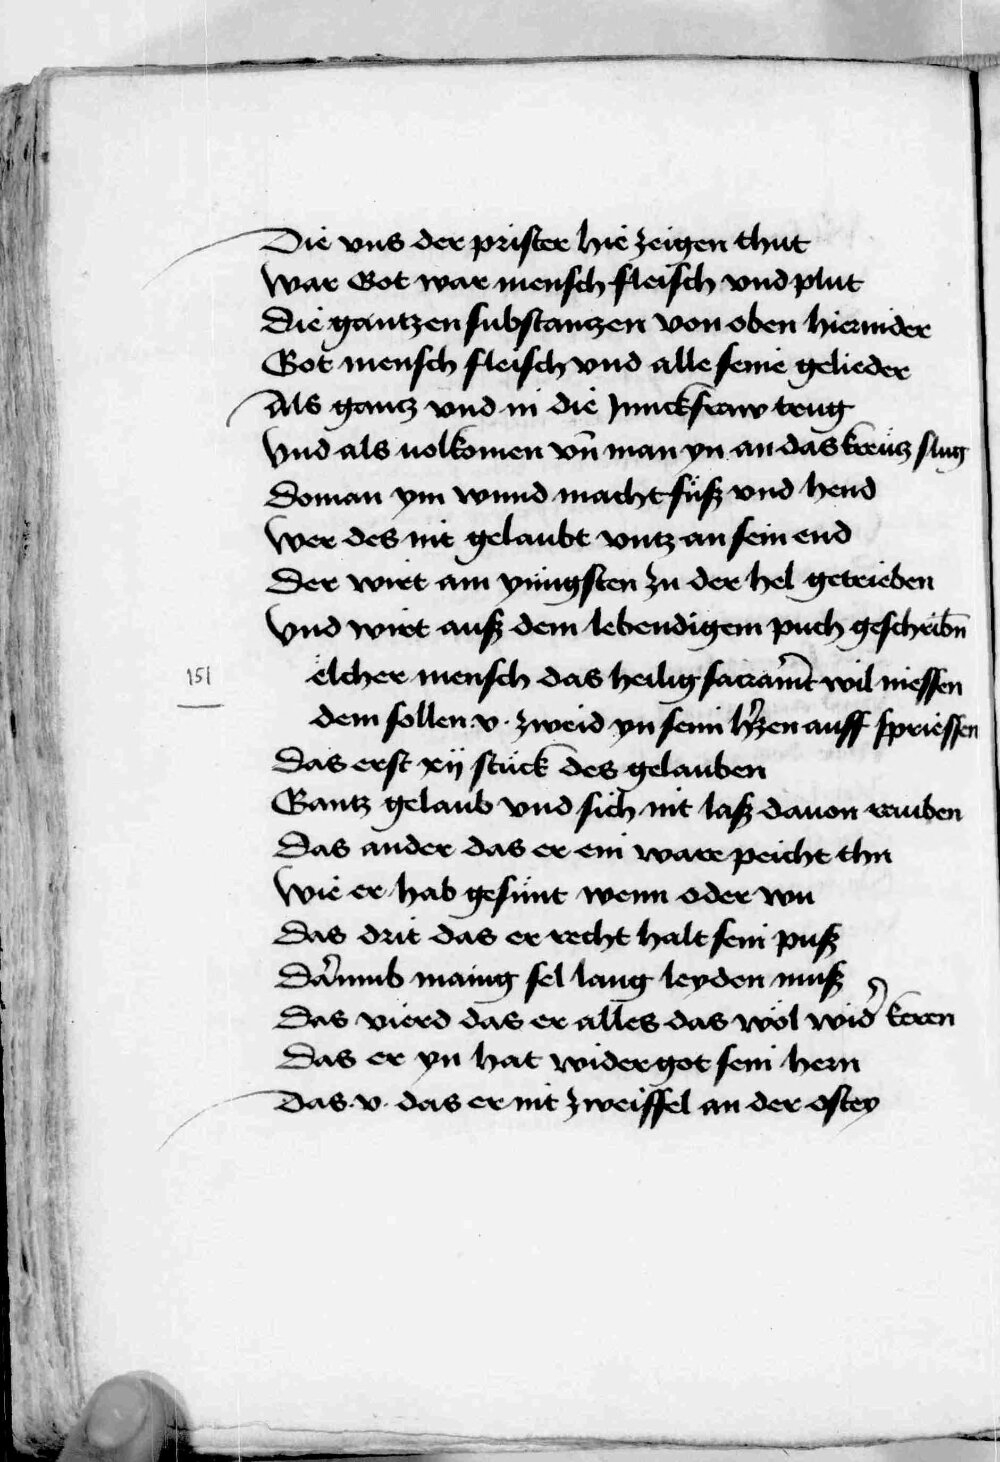 Die vns der prister hie zeigen thut
War Got war mensch fleisch vnd plut
Die gantzen substanczen von oben hiernider
Got mensch fleisch vnd alle seine gelieder
Als gancz vnd in die Junckfraw trug
Vnd als uolkomen vn̄ man yn an das kreücz slug
Do man ym wund macht füß vnd hend
Wer des nit gelaubt vntz an sein end
Der wirt am yüngsten zu der hel getrieben
Vnd wirt auß dem lebendigem puch geschribn̄
151
elcher mensch das heilig sacram̄t wil niessen
dem sollen .v. zweid yn seim h'zen auff spriessen
Das erst xij stück des gelauben
Gantz gelaub vnd sich nit laß dauon rauben
Das ander das er ein ware peicht thu
Wie er hab gesünt wenn oder wu
Das drit das er recht halt sein puß
Dar'umb manig sel lang leyden muß
Das vierd das er alles das wöl wid' keren
Das er yn hat wider got sein hern
Das .v. das er nit zweiffel an der ostey